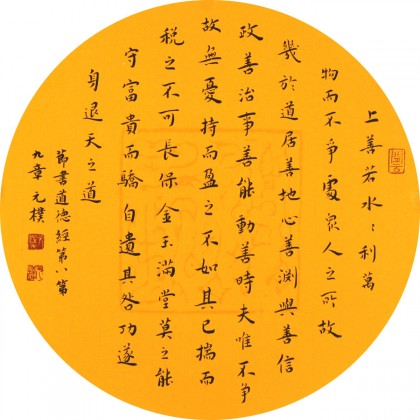 上善若水〻利萬
物而不爭處眾人之所故
幾於道居善地心善淵與善信
政善治事善能動善時夫唯不爭
故無憂持而盈之不如其已揣而
稅之不可長保金玉滿堂莫之能
守富貴而驕自遺其咎功遂
身退天之道
節書道德經第八第
九章元樸